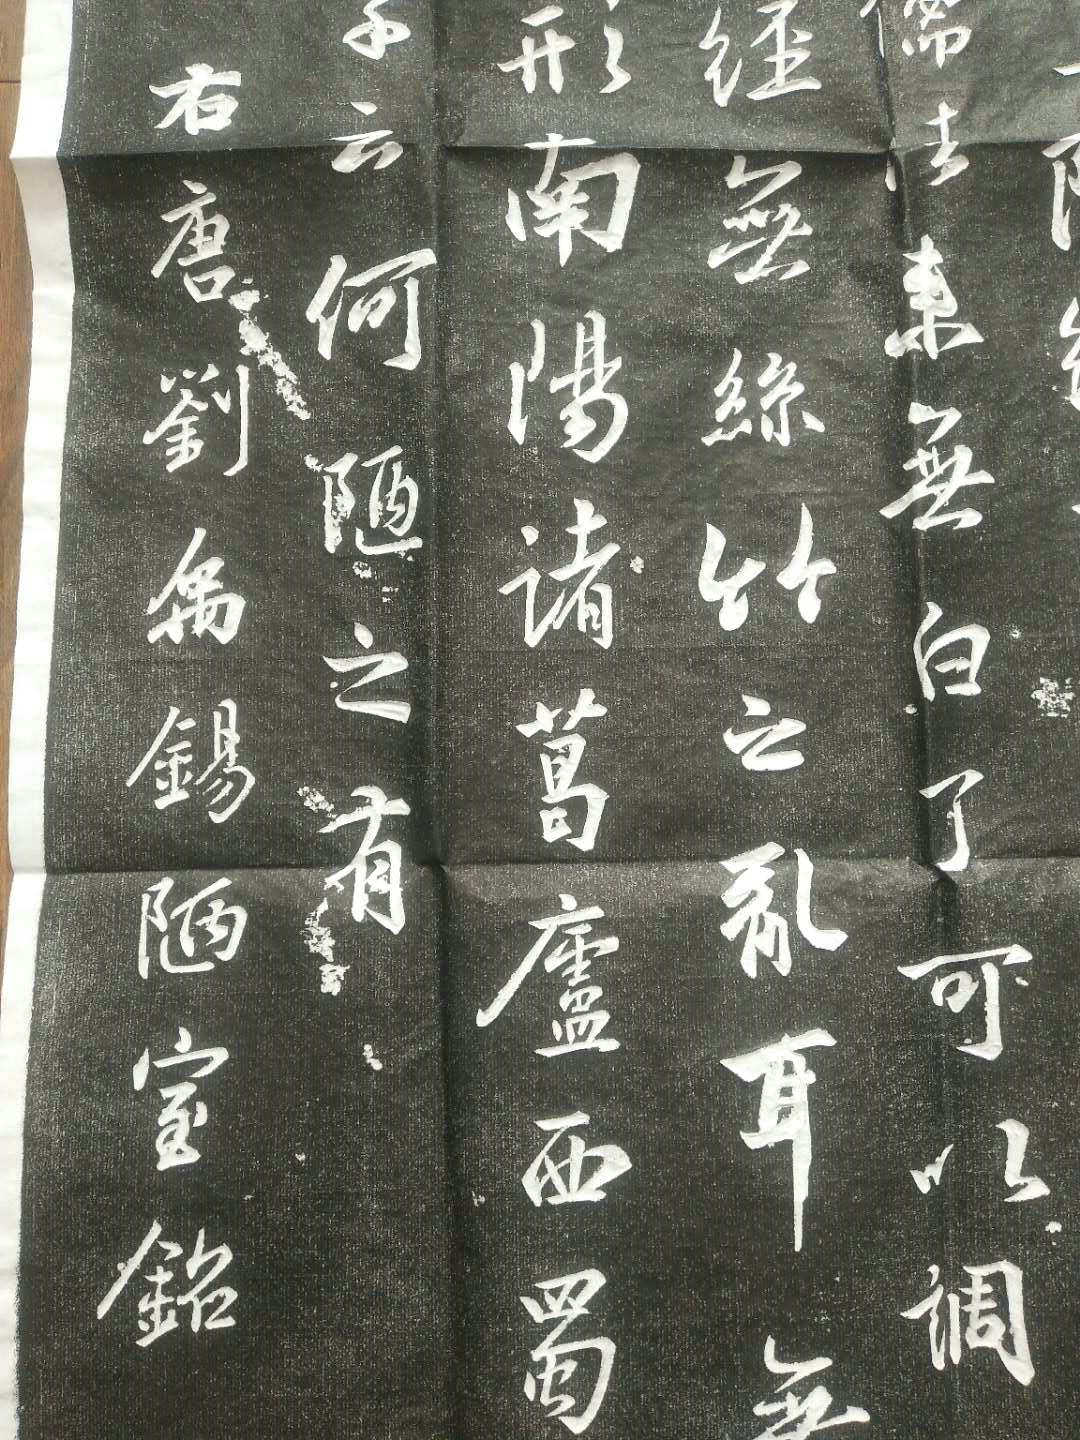 儒往来無白丁可以調
經無絲竹之亂耳無
形南陽諸葛廬西蜀
子云何陋之有
右唐劉禹錫陋室銘